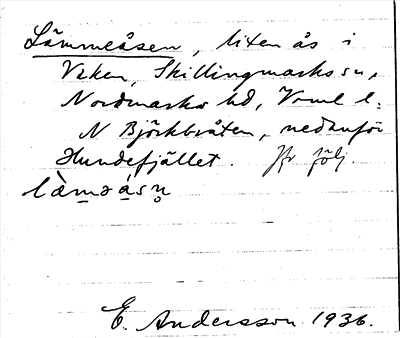 Lämmeåsen, liten ås i
Viken, Skillingmarks sn,
Nordmarks hd, Vrml l:
N Björkbråten, nedanför
Hundefjället. Jfr följ.
E. Andersson 1936.